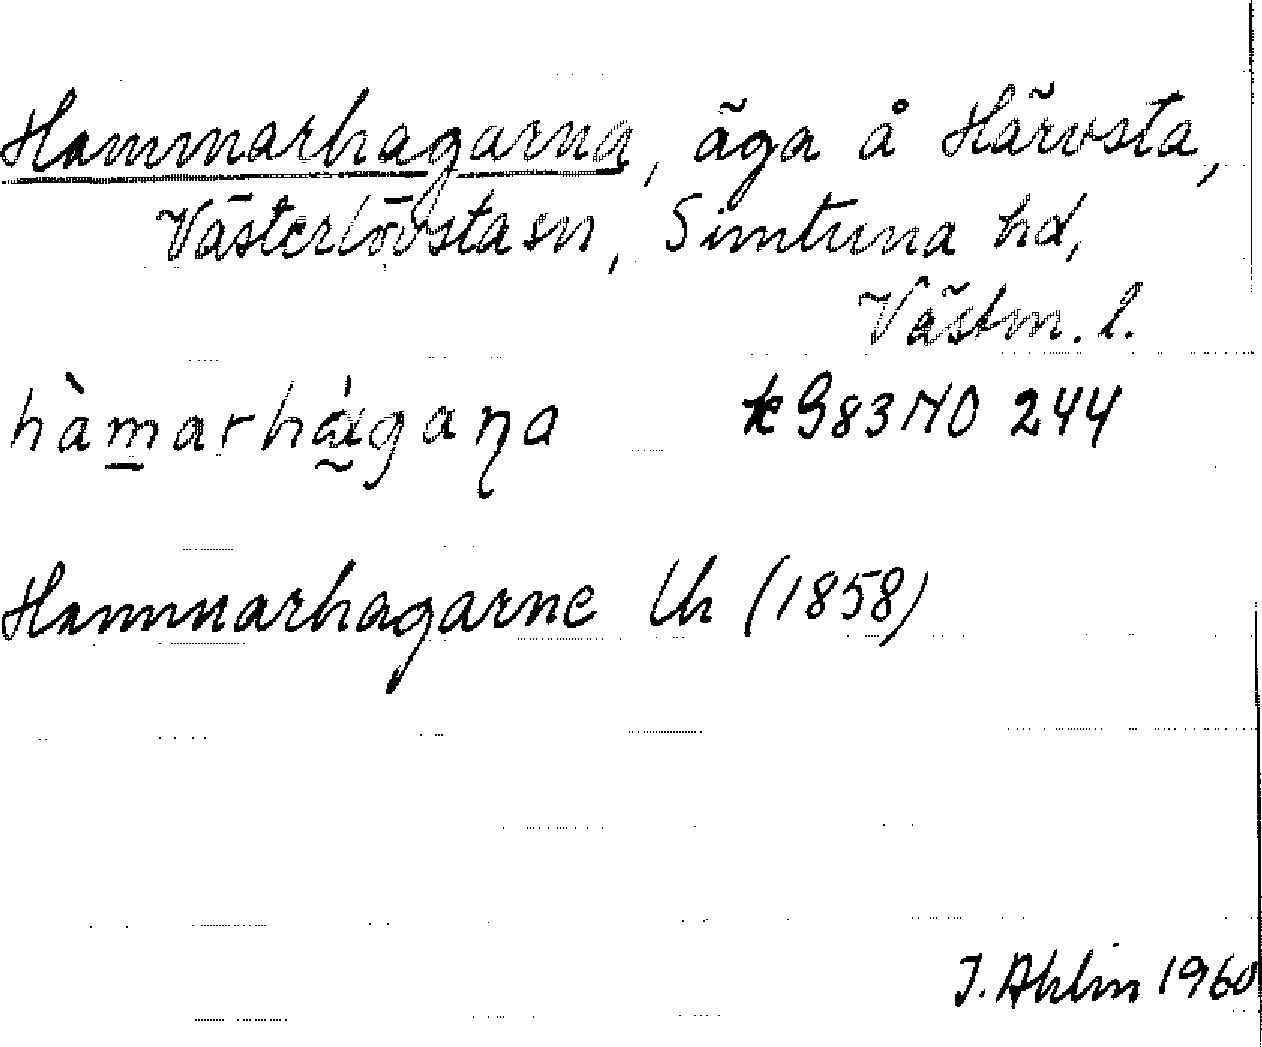 Hammarhagarna, äga å Härvsta,
Västerlövsta sn, Simtuna hd,
Västm. l.
hàmarhágaɳa k G83 NO 244
Hammarhagarne Lh (1858)
I. Ahlin 1960